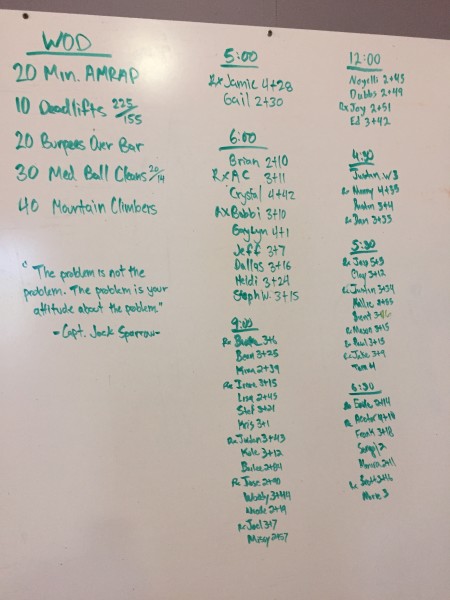 WOD
20 Min. AMRAP
10 Deadlifts 225/155
20 Burpees Over Bar
30 Med Ball Cleans 20/14
40 Mountain Climbers
"The problem is not the
problem. The problem is your
attitude about the problem"
-Capt. Jack Sparrow-
5:00
Rx Jamie 4+28
Gail 2+30
6:00
Brian 2+10
Rx AC 3+11
Crystal 4+42
Rx Bobbi 3+10
GaryLyn 4+1
Jeff 3+7
Dallas 3+16
Heidi 3+24
Steph W. 3+15
9:00
Rx 3+6
Bean 3+25
Mina 2+39
Rx Irene 3+15
Lisa 2+45
Stef 3+21
Kris 3+1
Rx Justin 3+43
Kale 3+12
Bailee 2+84
Rx Jose 2+90
3+44
Nicole 2+19
Rx Joel 3+7
Missy 2+57
12:00
2+45
Dubbs 2+49
Rx Jay 2+51
Ed 3+42
4:30
Justan w/3
Rx Manny 4+35
3+4
Rx Dan 3+33
5:30
Rx
Clay 3+12
Rx Justin 3+34
Hallie
Brent
Rx Mason 3+15
Rx Paul 3+15
Rx Jake 3+9
Tara 4
6:30
2+14
Rx Hector
Frank 3+18
2
2+11
Rx Brett 3+16
Marie 3